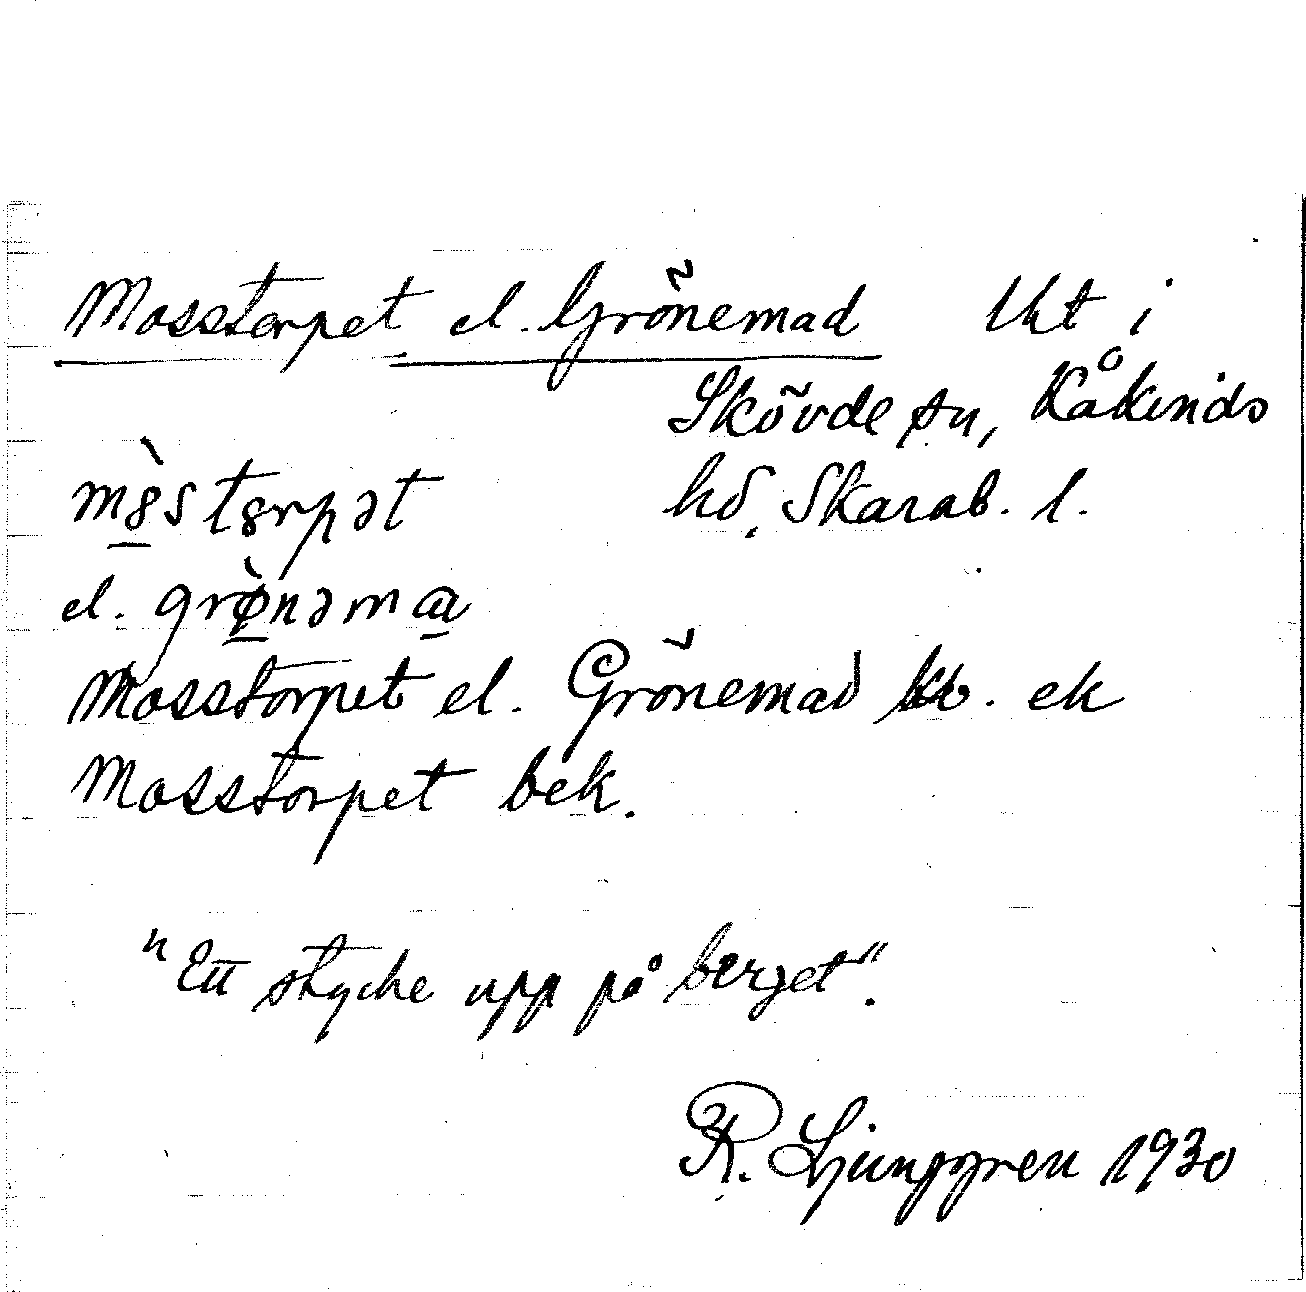 Mosstorpet el. Grönemad Utt i
Skövde sn, Kåkinds
hd. Skarab. l.
mò̱sto̱rpət
el. grø̱̀nəma̱
Mosstorpet el. Grönemad kb. ek
Mosstorpet bek.
"Ett stycke upp på berget".
R. Ljunggren 1930